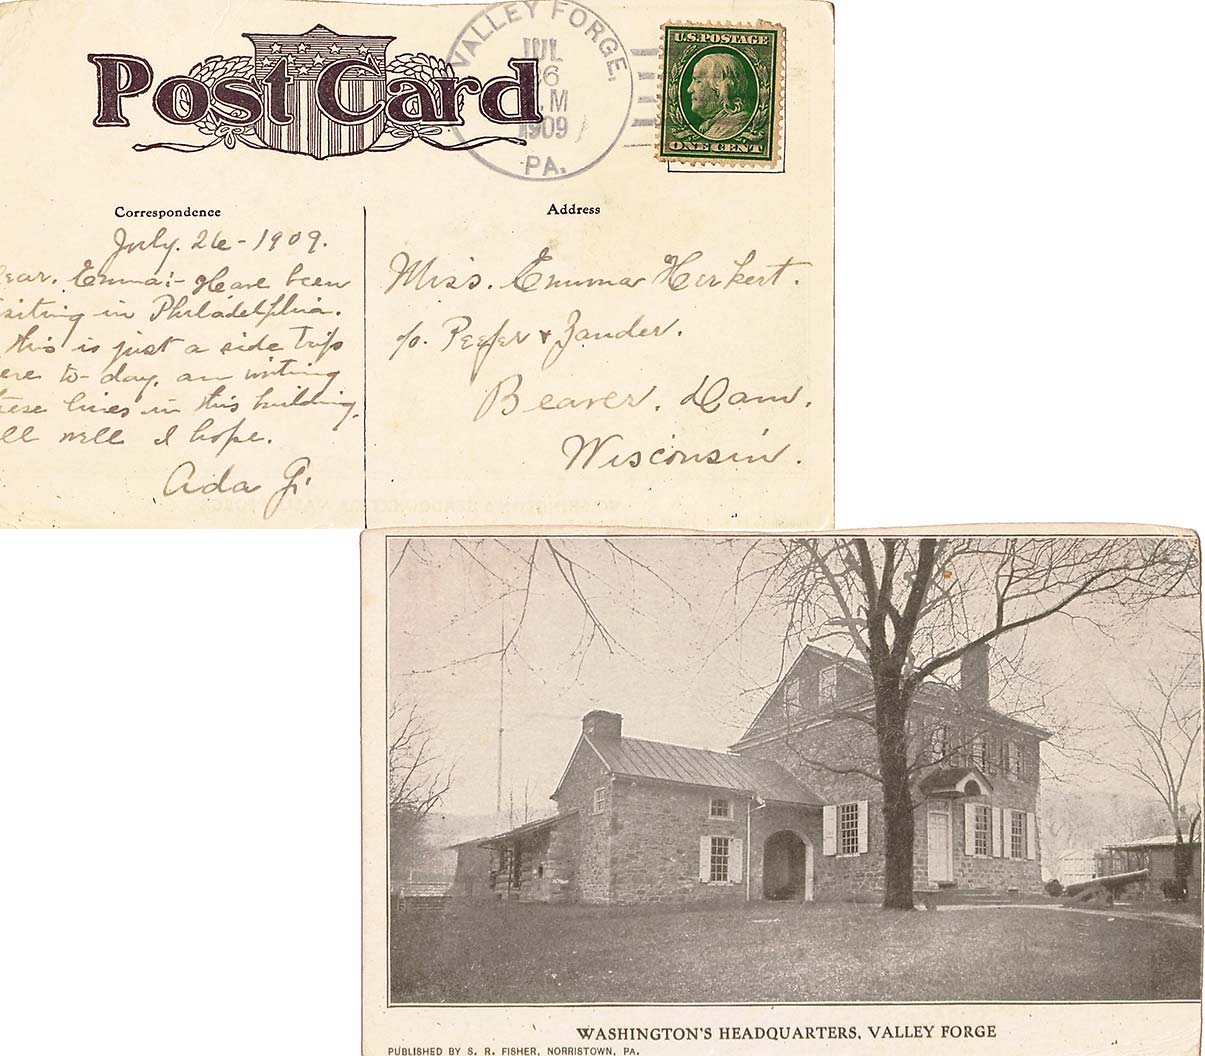 Post Card
VALLEY FORGE,
JUL
26
M
1909
PA.
U.S. POSTAGE
ONE CENT
Correspondence
July. 26-1909.
ear. Emma:- Have been
siting in Philadelphia.
this is just a side trip
ere to-day, am writing
ese lines in this building.
ll well I hope.
Ada G.
Address
Miss. Emma Herkert.
c/o. Peefer & Zander.
Beaver. Dam.
Wisconsin.
WASHINGTON'S HEADQUARTERS, VALLEY FORGE
PUBLISHED BY S. R. FISHER, NORRISTOWN, PA.